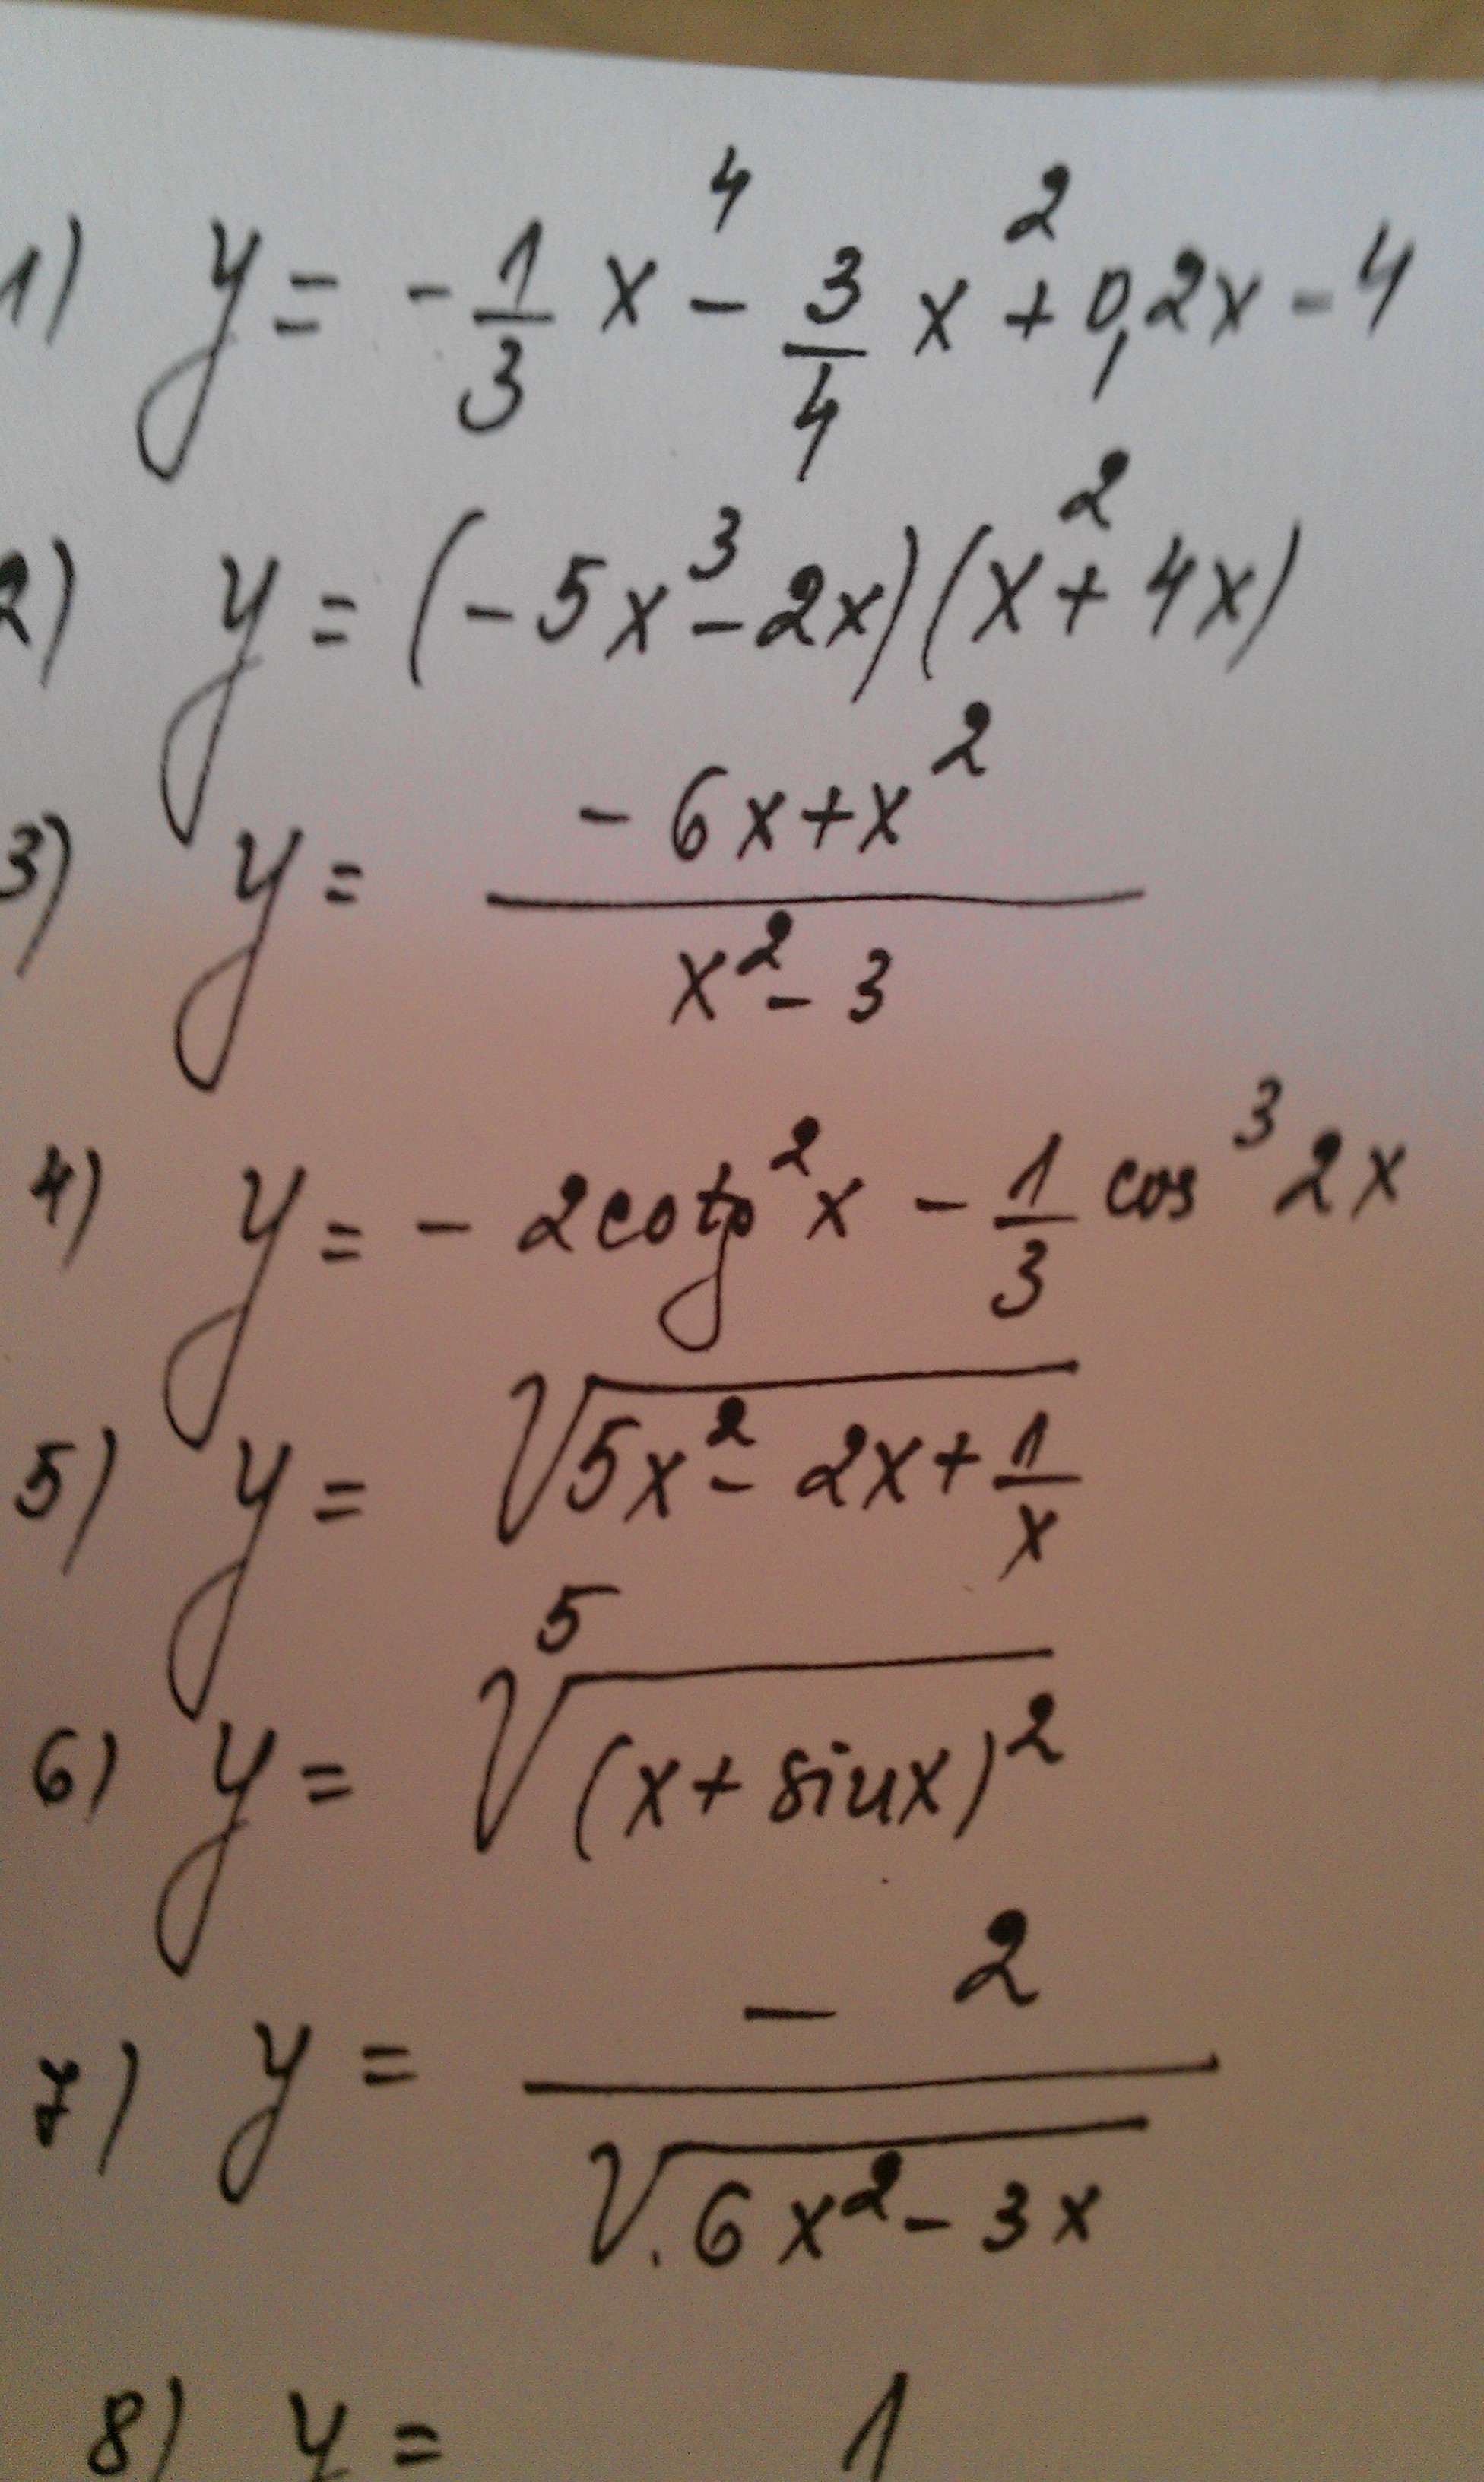 1) y = -1/3 x^4 - 3/4 x^2 + 0,2x - 4
2) y = (-5x^3 - 2x)(x^2 + 4x)
3) y = (-6x + x^2)/(x^2 - 3)
4) y = -2cotg^2 x - 1/3 cos^3 2x
5) y = √(5x^2 - 2x + 1/x)
6) y = ⁵√((x + sinx)^2)
7) y = -2/√(6x^2 - 3x)
8) y = 1